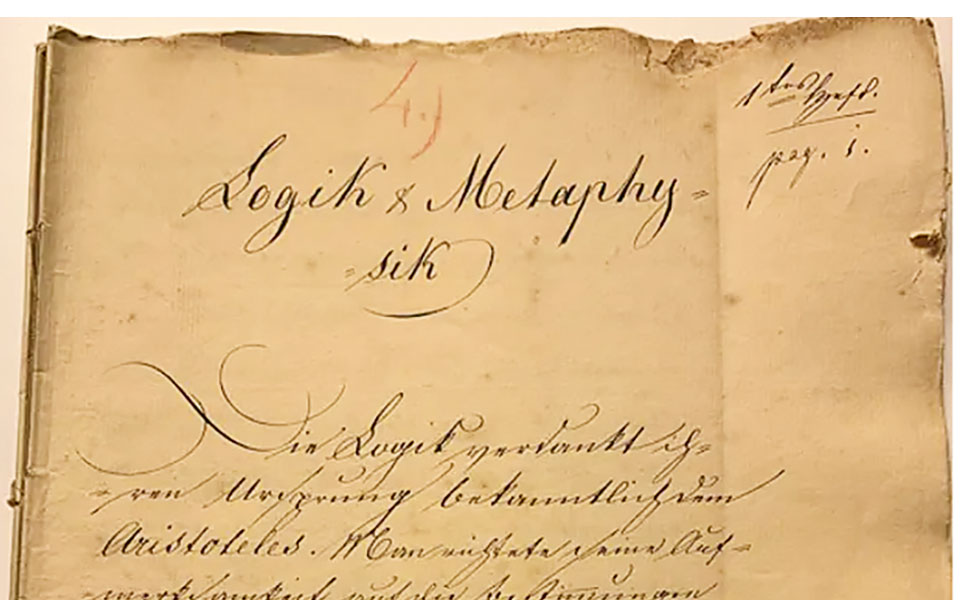 4.)
1tes Heft.
pag. 1.
Logik & Metaphy=
=sik
Die Logik verdankt ih=
=ren Ursprung bekanntlich dem
Aristoteles. Man richtete seine Auf=
=merksamkeit auf die Bestimmungen